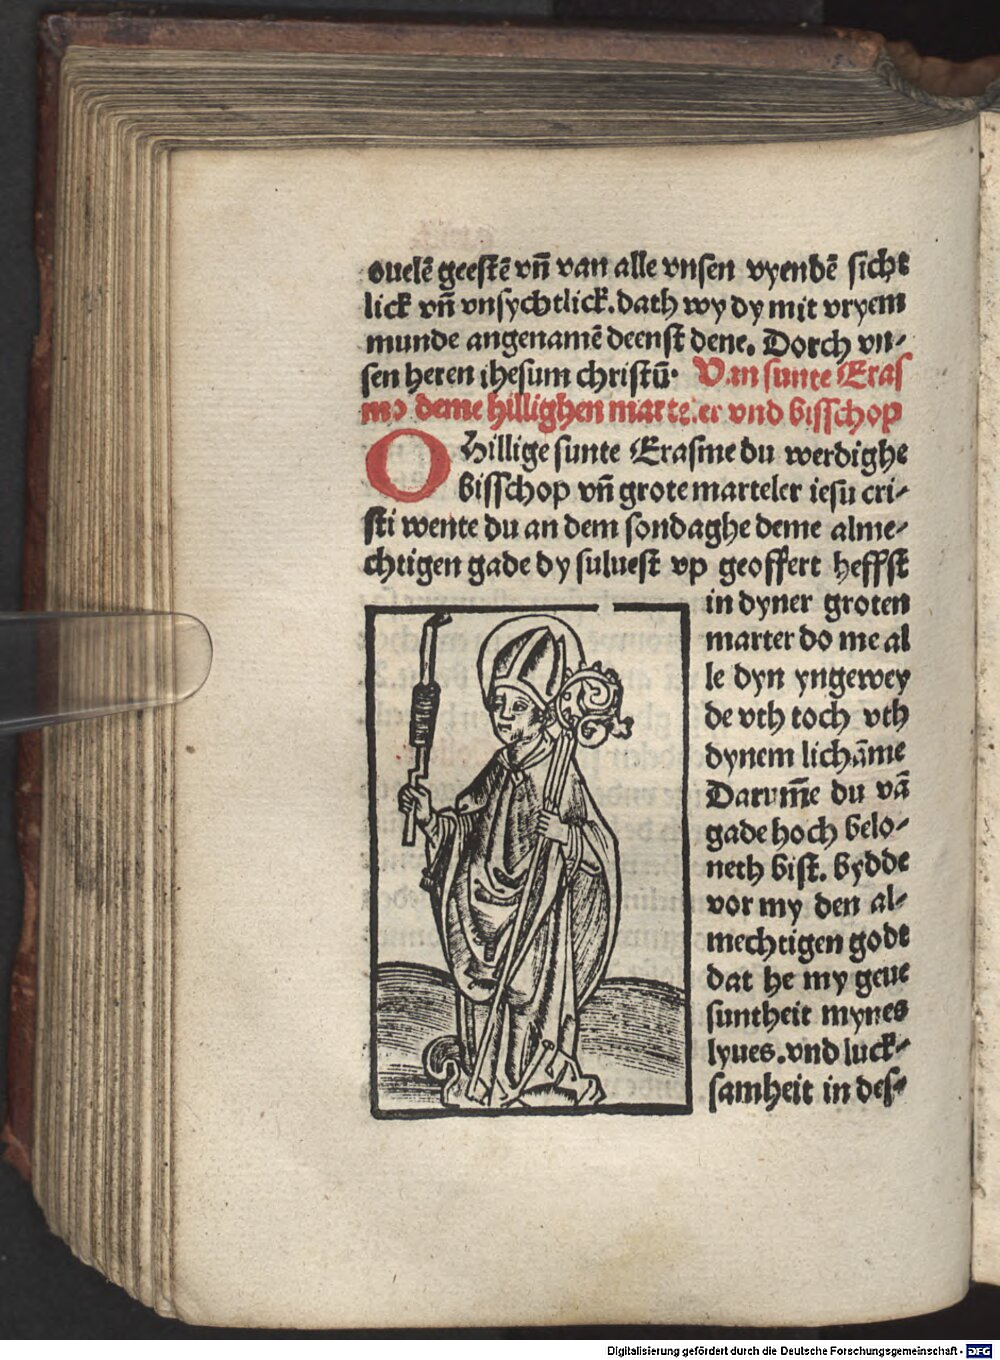 ouelē geestē vn̄ van alle vnsen vyendē sicht
lick vn̄ vnsychtlick. dath wy dy mit vryem
munde angenamē deenst dene. Dorch vn-
sen heren ihesum christū. Van sunte Eras
mo deme hillighen marteler vnd bisschop
O Hillige sunte Erasme du werdighe
bisschop vn̄ grote marteler iesu cri-
sti wente du an dem sondaghe deme alme-
chtigen gade dy suluest vp geoffert heffst
in dyner groten
marter do me al
le dyn yngewey
de vth toch vth
dynem lichāme
Darum̄e du vā
gade hoch belo-
neth bist. bydde
vor my den al-
mechtigen gode
dat he my geue
suntheit mynes
lyues. vnd luck-
samheit in des-
Digitalisierung gefördert durch die Deutsche Forschungsgemeinschaft - DFG